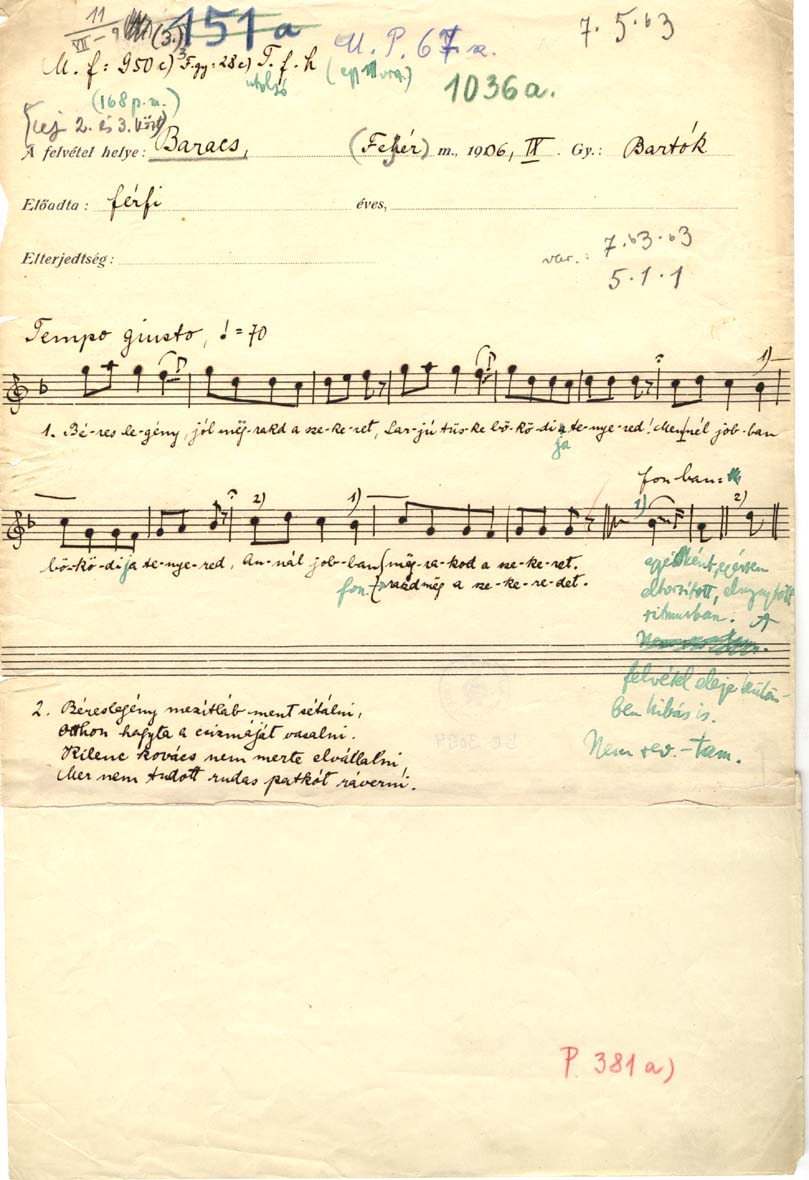 11
VII-9 (3.) 151 a
7. 5. b3
M. P. 67. a.
M. f: 950 c) F. gy: 28 c) T. f. h
utolsó
1036 a.
(168 p. u.)
(cej 2. és 3. közt)
A felvétel helye: Baracs, (Fehér) m., 1906, IX. Gy.: Bartók
Előadta: férfi éves,
Elterjedtség:
var.: 7. b3. b3
5. 1. 1
Tempo giusto, = 70
1)
1. Bé-res le-gény, jól mëg-rakd a sze-ke-ret, Sar-jú tüs-ke bö-kö-di a te-nye-red! Mennél job-ban
ja
fon-ban:
2) 1) 1) 2)
bö-kö-di ja te-nye-red, An-nál job-ban mëg-ra-kod a sze-ke-ret.
fon. rakd mëg a sze-ke-re-det.
ritmusban. A
felvétel eleje külön-
ben hibás is.
Nem rev.-tam.
2. Béreslegény mezitláb ment sétálni,
Otthon hagyta a csizmáját vasalni.
Kilenc kovács nem merte elvállalni,
Mer nem tudott rudas patkót ráverni.
P. 381 a)